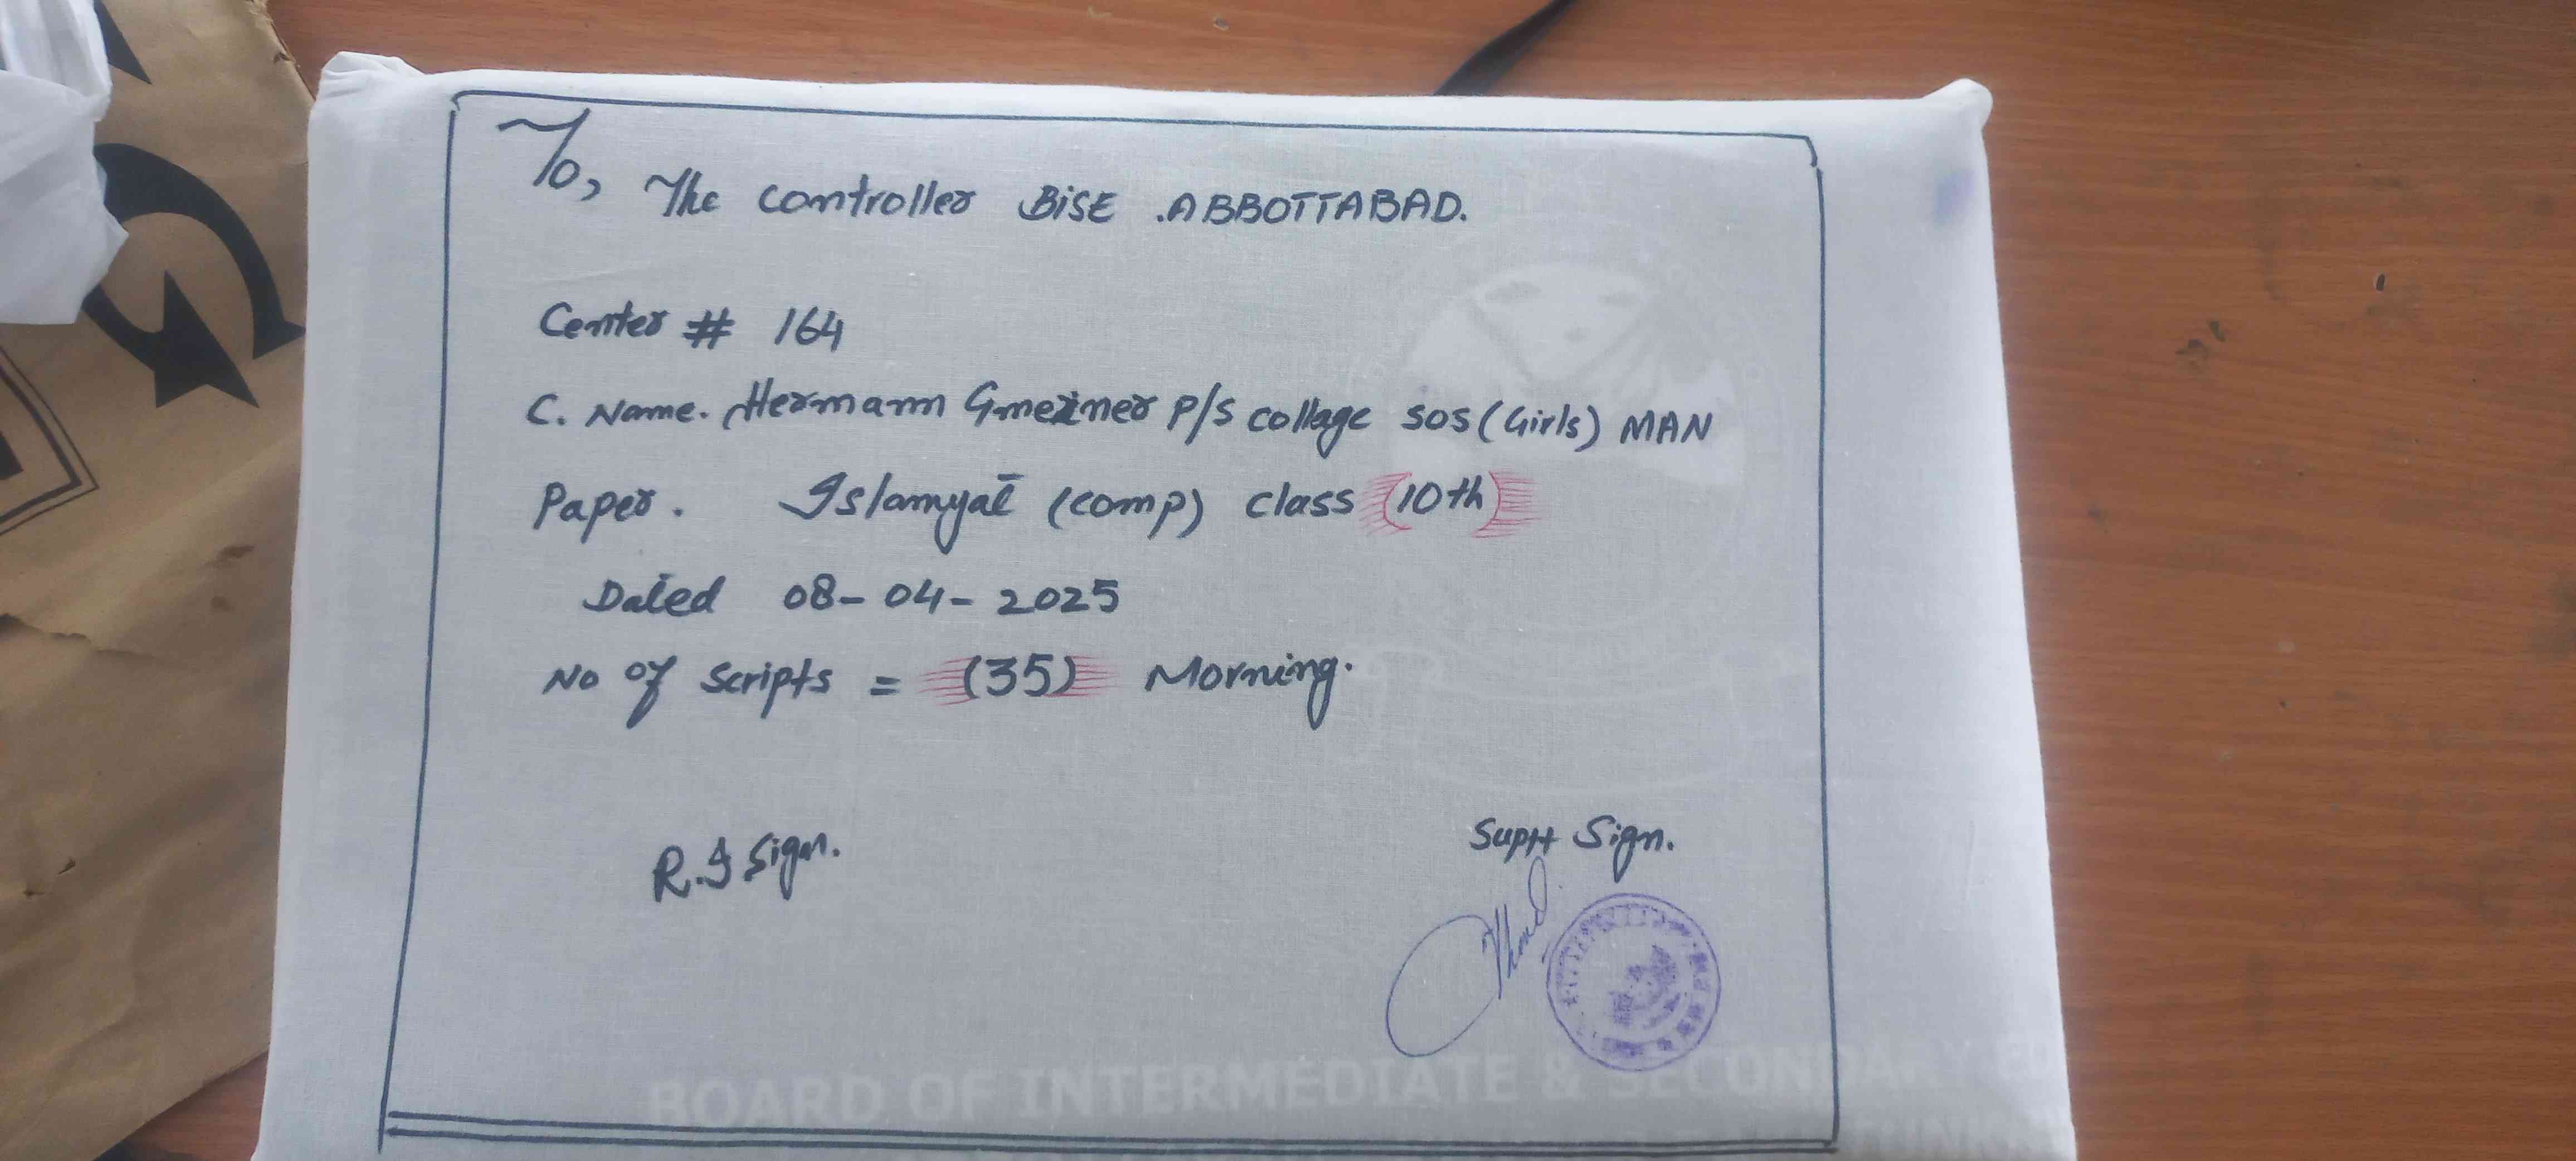 To, The controller BISE .ABBOTTABAD.
Center # 164
C. Name. Hermann Gmeiner P/S collage SOS (Girls) MAN
Paper. Islamyat (comp) class (10th)
Dated 08-04-2025
No of scripts = (35) Morning.
R.I Sign.
Supt Sign.
BOARD OF INTERMEDIATE & SECONDARY